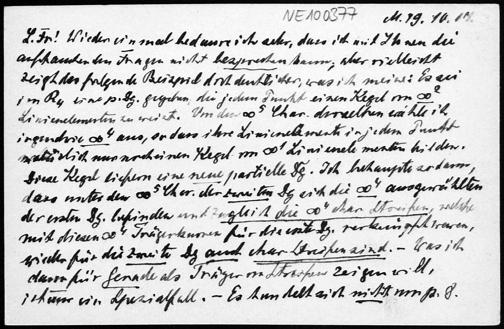 NE100377
M. 19. 10. 14.
L. Fr! Wieder einmal bedaure ich sehr, dass ich mit Ihnen die
auftauchenden Fragen nicht besprechen kann, aber vielleicht
zeigt das folgende Beispiel doch deutlicher, was ich meine: Es sei
im R4 eine p. Dg. gegeben, die jedem Punkt einen Kegel von ∞²
Linienelementen zuweist. Von den ∞⁵ Char. derselben wähle ich
irgendwie ∞⁴ aus, so dass ihre Linienelemente in jedem Punkt
natürlich nur noch einen Kegel von ∞¹ Linienelementen bilden.
Diese Kegel liefern eine neue partielle Dg. Ich behaupte sodann,
dass unter den ∞⁵ Char. der zweiten Dg sich die ∞⁴ ausgewählten
der ersten Dg. befinden und zugleich die ∞⁴ char. Streifen, welche
mit diesen ∞⁴ Trägerkurven für die erste Dg. verknüpft waren,
wieder für die zweite Dg auch char. Streifen sind. – Was ich
dann für Gerade als Träger von Streifen zeigen will,
ist nur ein Spezialfall. – Es handelt sich nicht um p. 8.